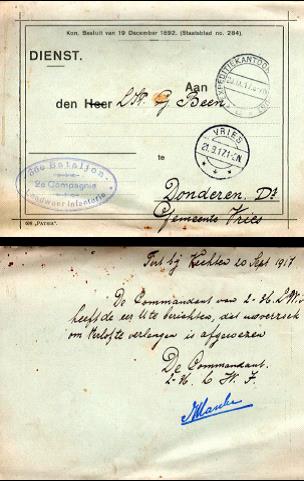 Kon. Besluit van 19 December 1892. (Staatsblad no. 284).
DIENST.
Aan
den Heer LW. G Been
VRIES
21.9.17.1-2N
te
36e Bataljon.
2e Compagnie
Landweer Infanterie
Donderen. Dt
Gemeente Vries
609 „PATRIA".
Fort bij Vechten 20 Sept 1917
De Commandant van 2-36. L.W.I
heeft de eer U te berichten, dat uw verzoek
om verlof te verlengen is afgewezen
De Commandant.
2-36. L W. I.